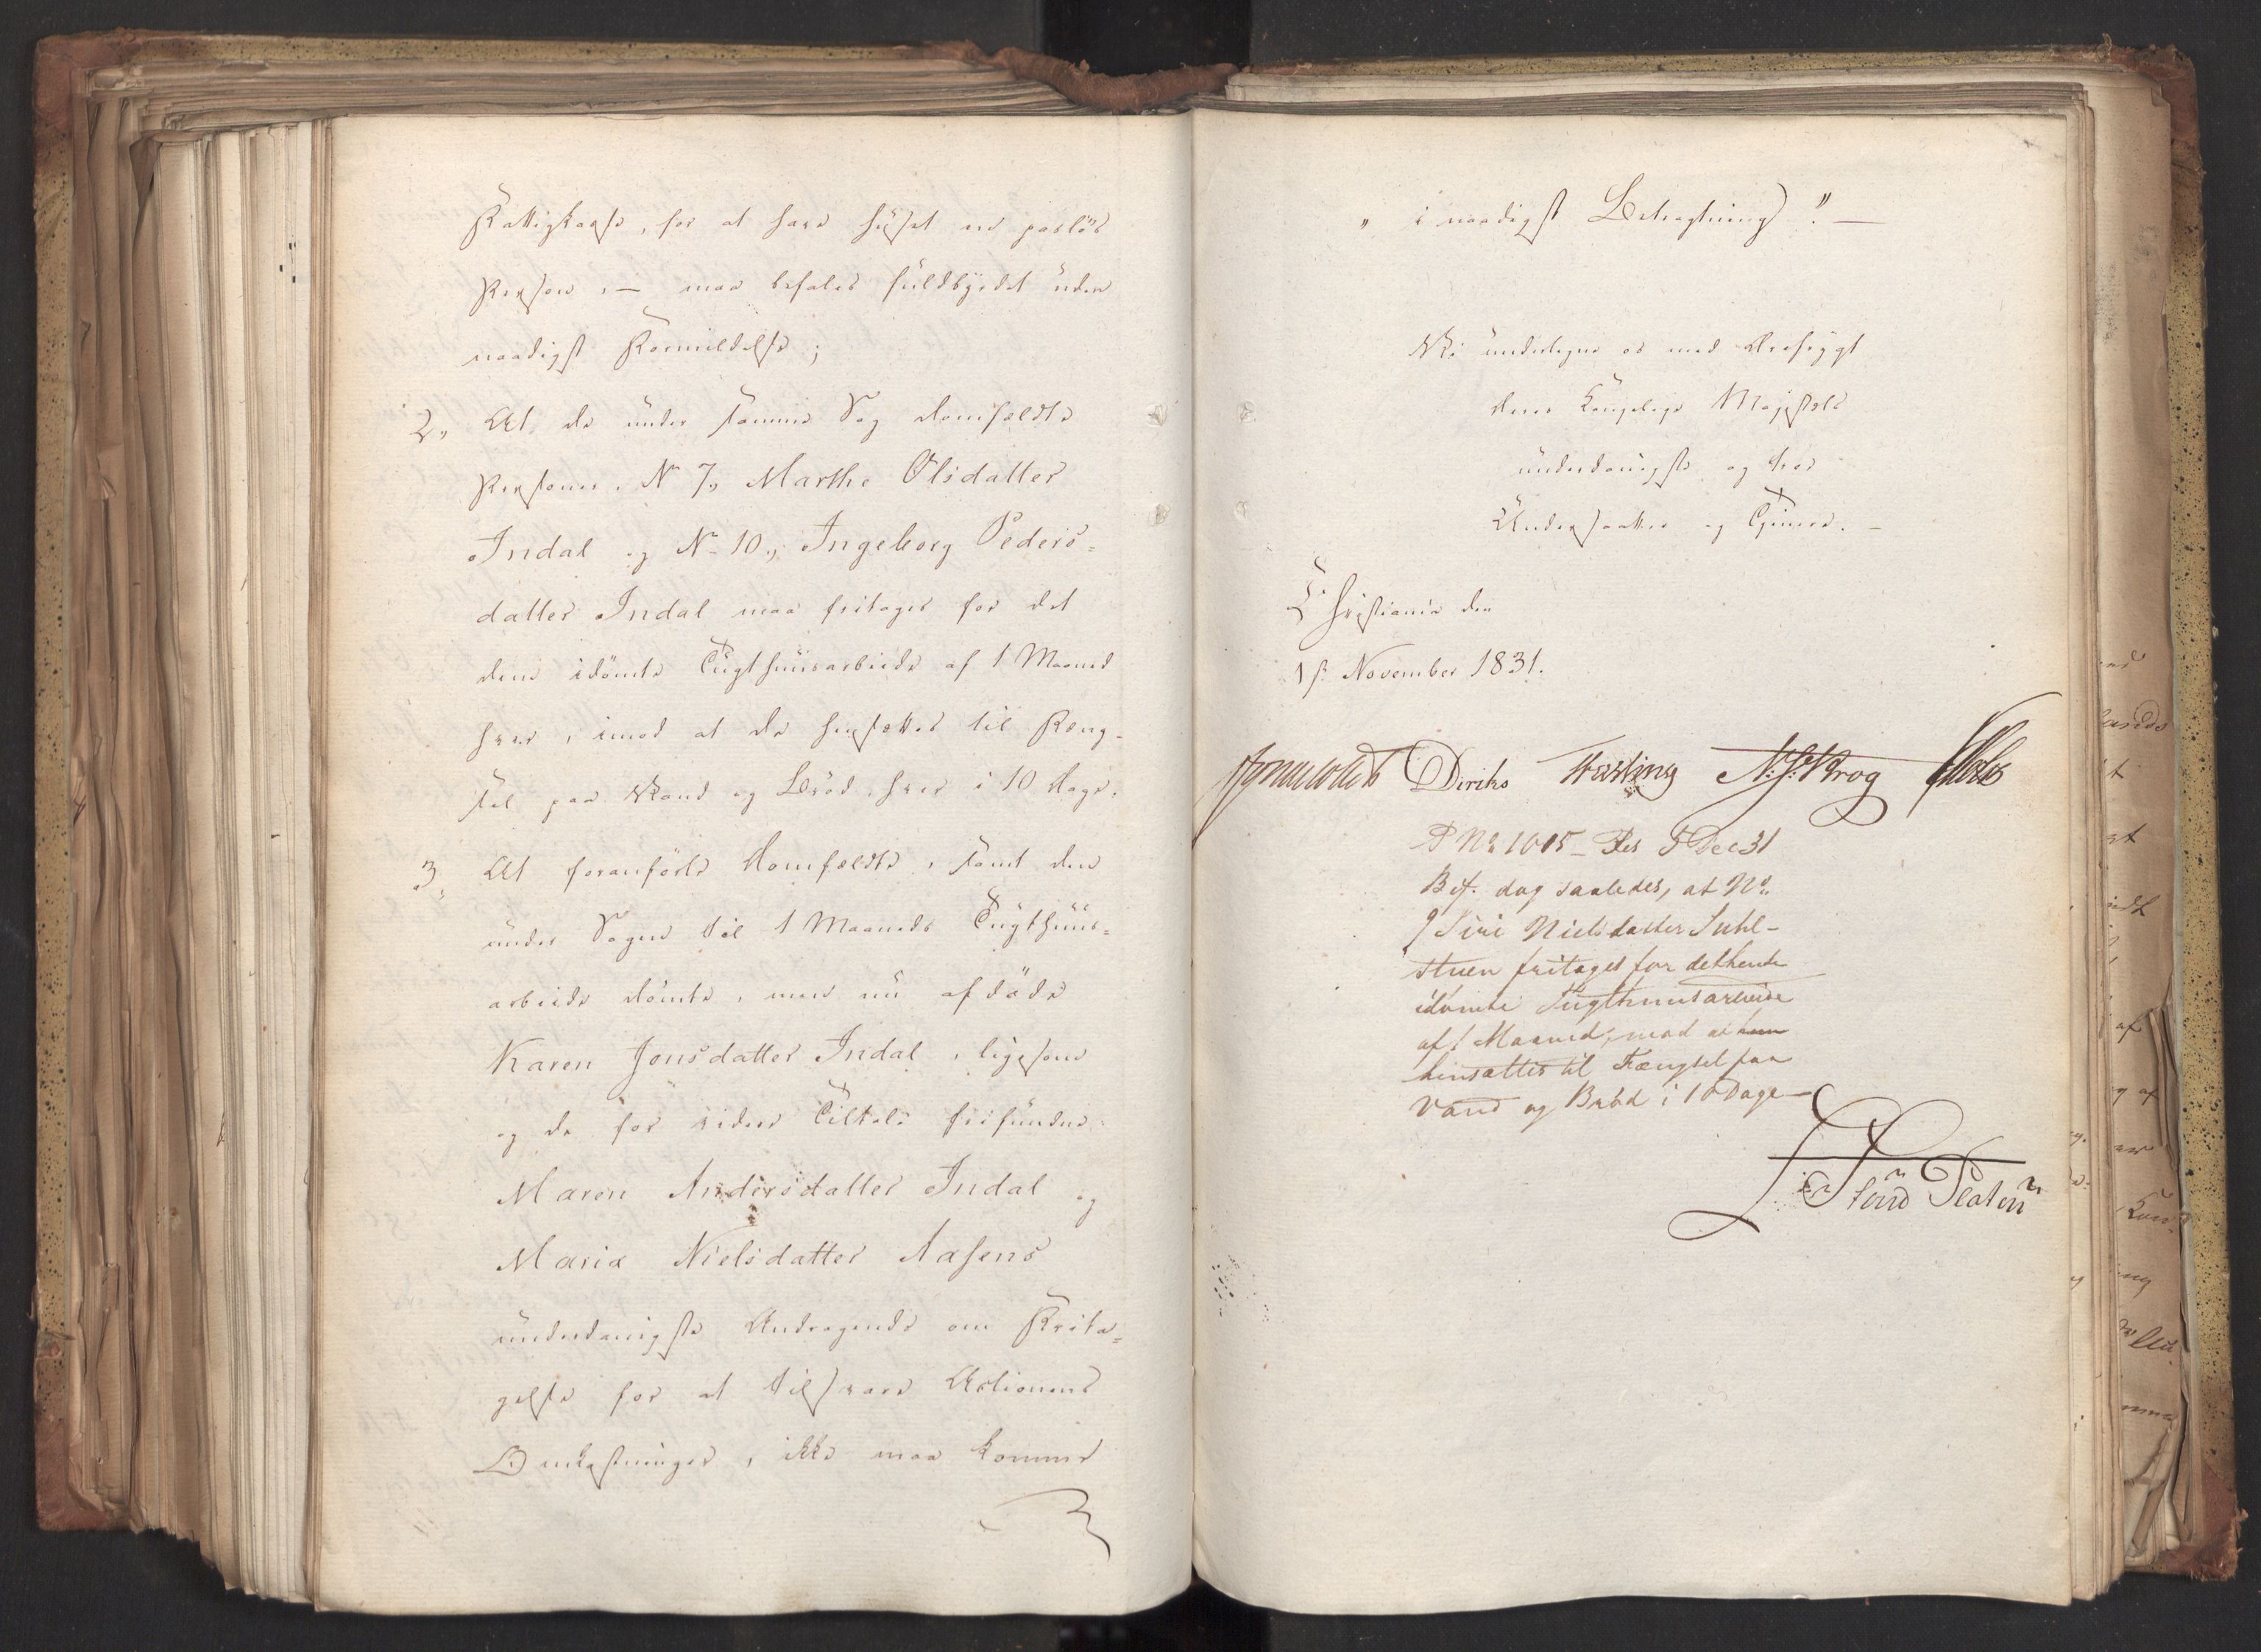 Fattigkasse, for at have huset en pasløs
Person, – maa befales fuldbyrdet uden
naadigst Formildelse;
2, At de under samme Sag domfældte
Personer, N 7, Marthe Olsdatter
Indal og No 10, Ingeborg Peders=
datter Indal maa fritages for det
dem idömte Tugthuusarbeide af 1 Maaned
hver, imod at de hensættes til Fæng-
sel paa Vand og Bröd hver i 10 Dage.
3, At foranförte Domfældte, samt den
under Sagen til 1 Maaneds Tugthuus=
arbeide dömte, men nu afdöde
Karen Jonsdatter Indal, ligesom
og de for videre Tiltale frifundne:
Maren Andersdatter Indal og
Maria Nielsdatter Aasens
underdanigste Andragende om Frita=
gelse for at tilsvare Actionens
Omkostninger, ikke maa komme
„ i naadigst Betragtning". –
Vi undertegne os med Ærefrygt
Deres Kongelige Majestæts
underdanigste og troe
Undersaatter og Tjenere. –
Christiania den
1st November 1831.
Diriks N: J: Krog
P No 1005 – Res 5 Dec 31
Bif. dog saaledes, at No
9 Siri Nielsdatter Suhl-
stuen fritages for det hende
idömte Tugthuusarbeide
af 1 Maaned, mod at hun
hensættes til Fængsel paa
Vand og Bröd i 10 Dage –
Platen